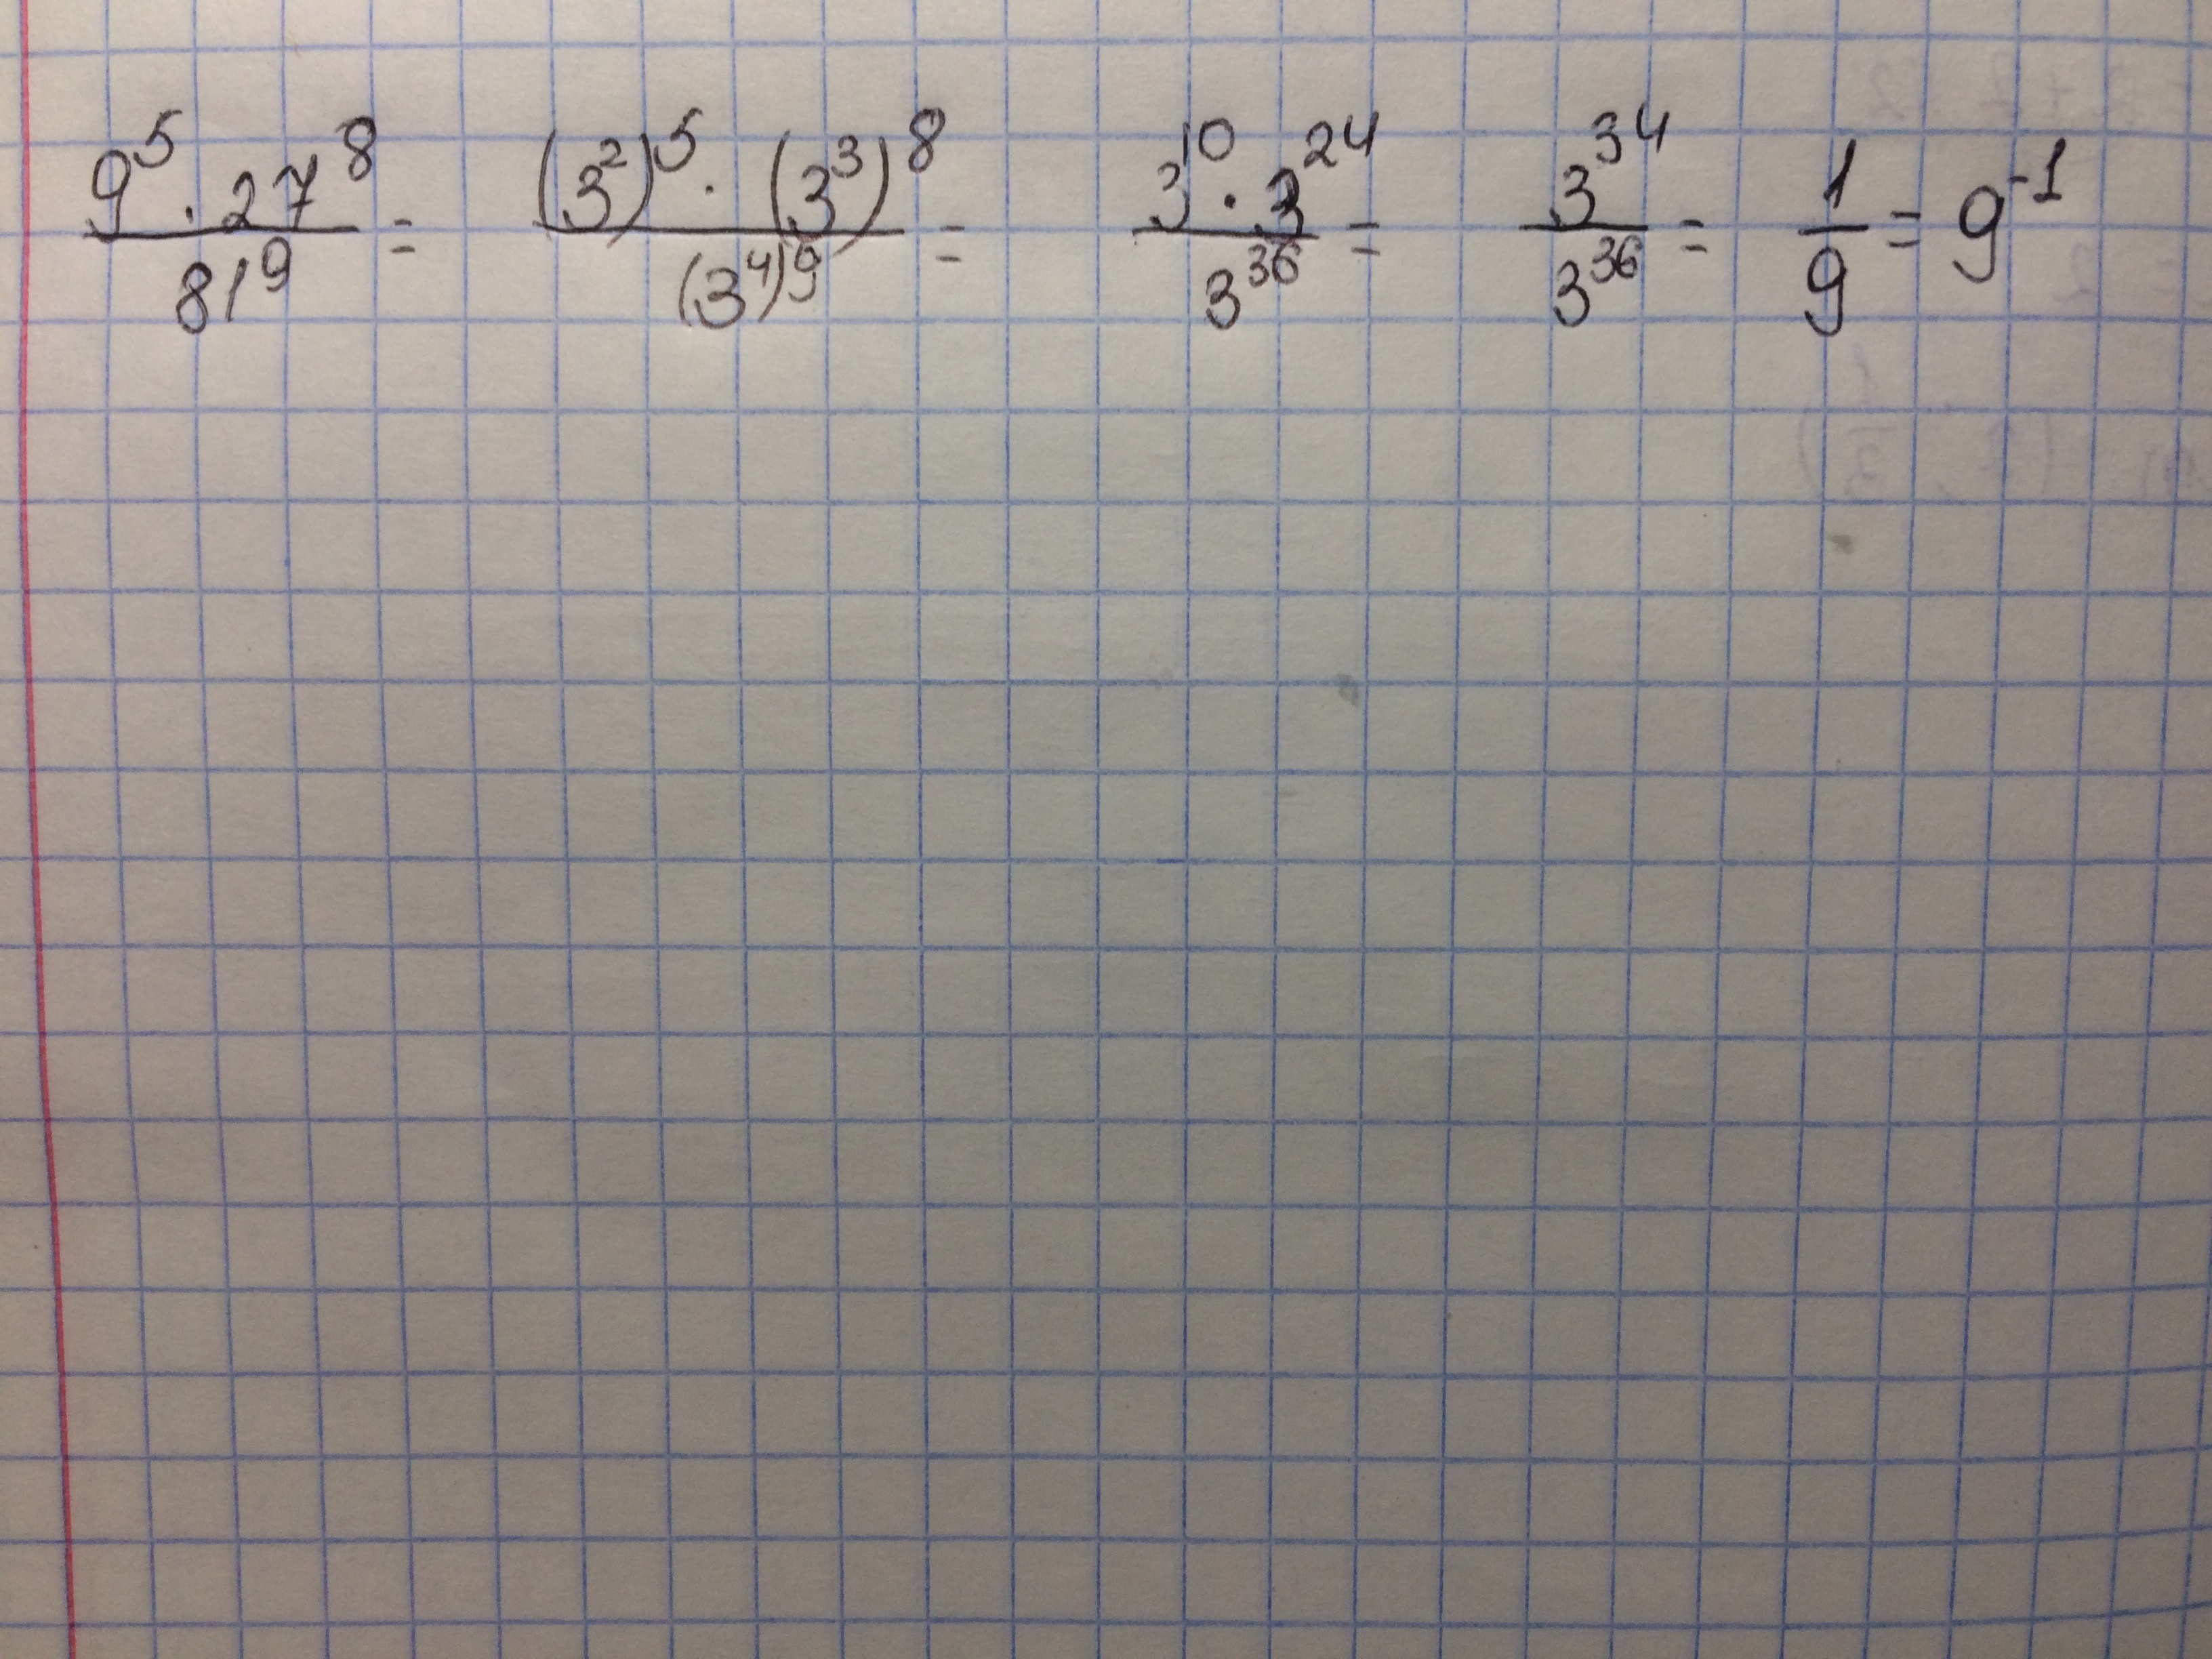 9⁵ · 27⁸ / 81⁹ = (3²)⁵ · (3³)⁸ / (3⁴)⁹ = 3¹⁰ · 3²⁴ / 3³⁶ = 3³⁴ / 3³⁶ = 1 / 9 = 9⁻¹